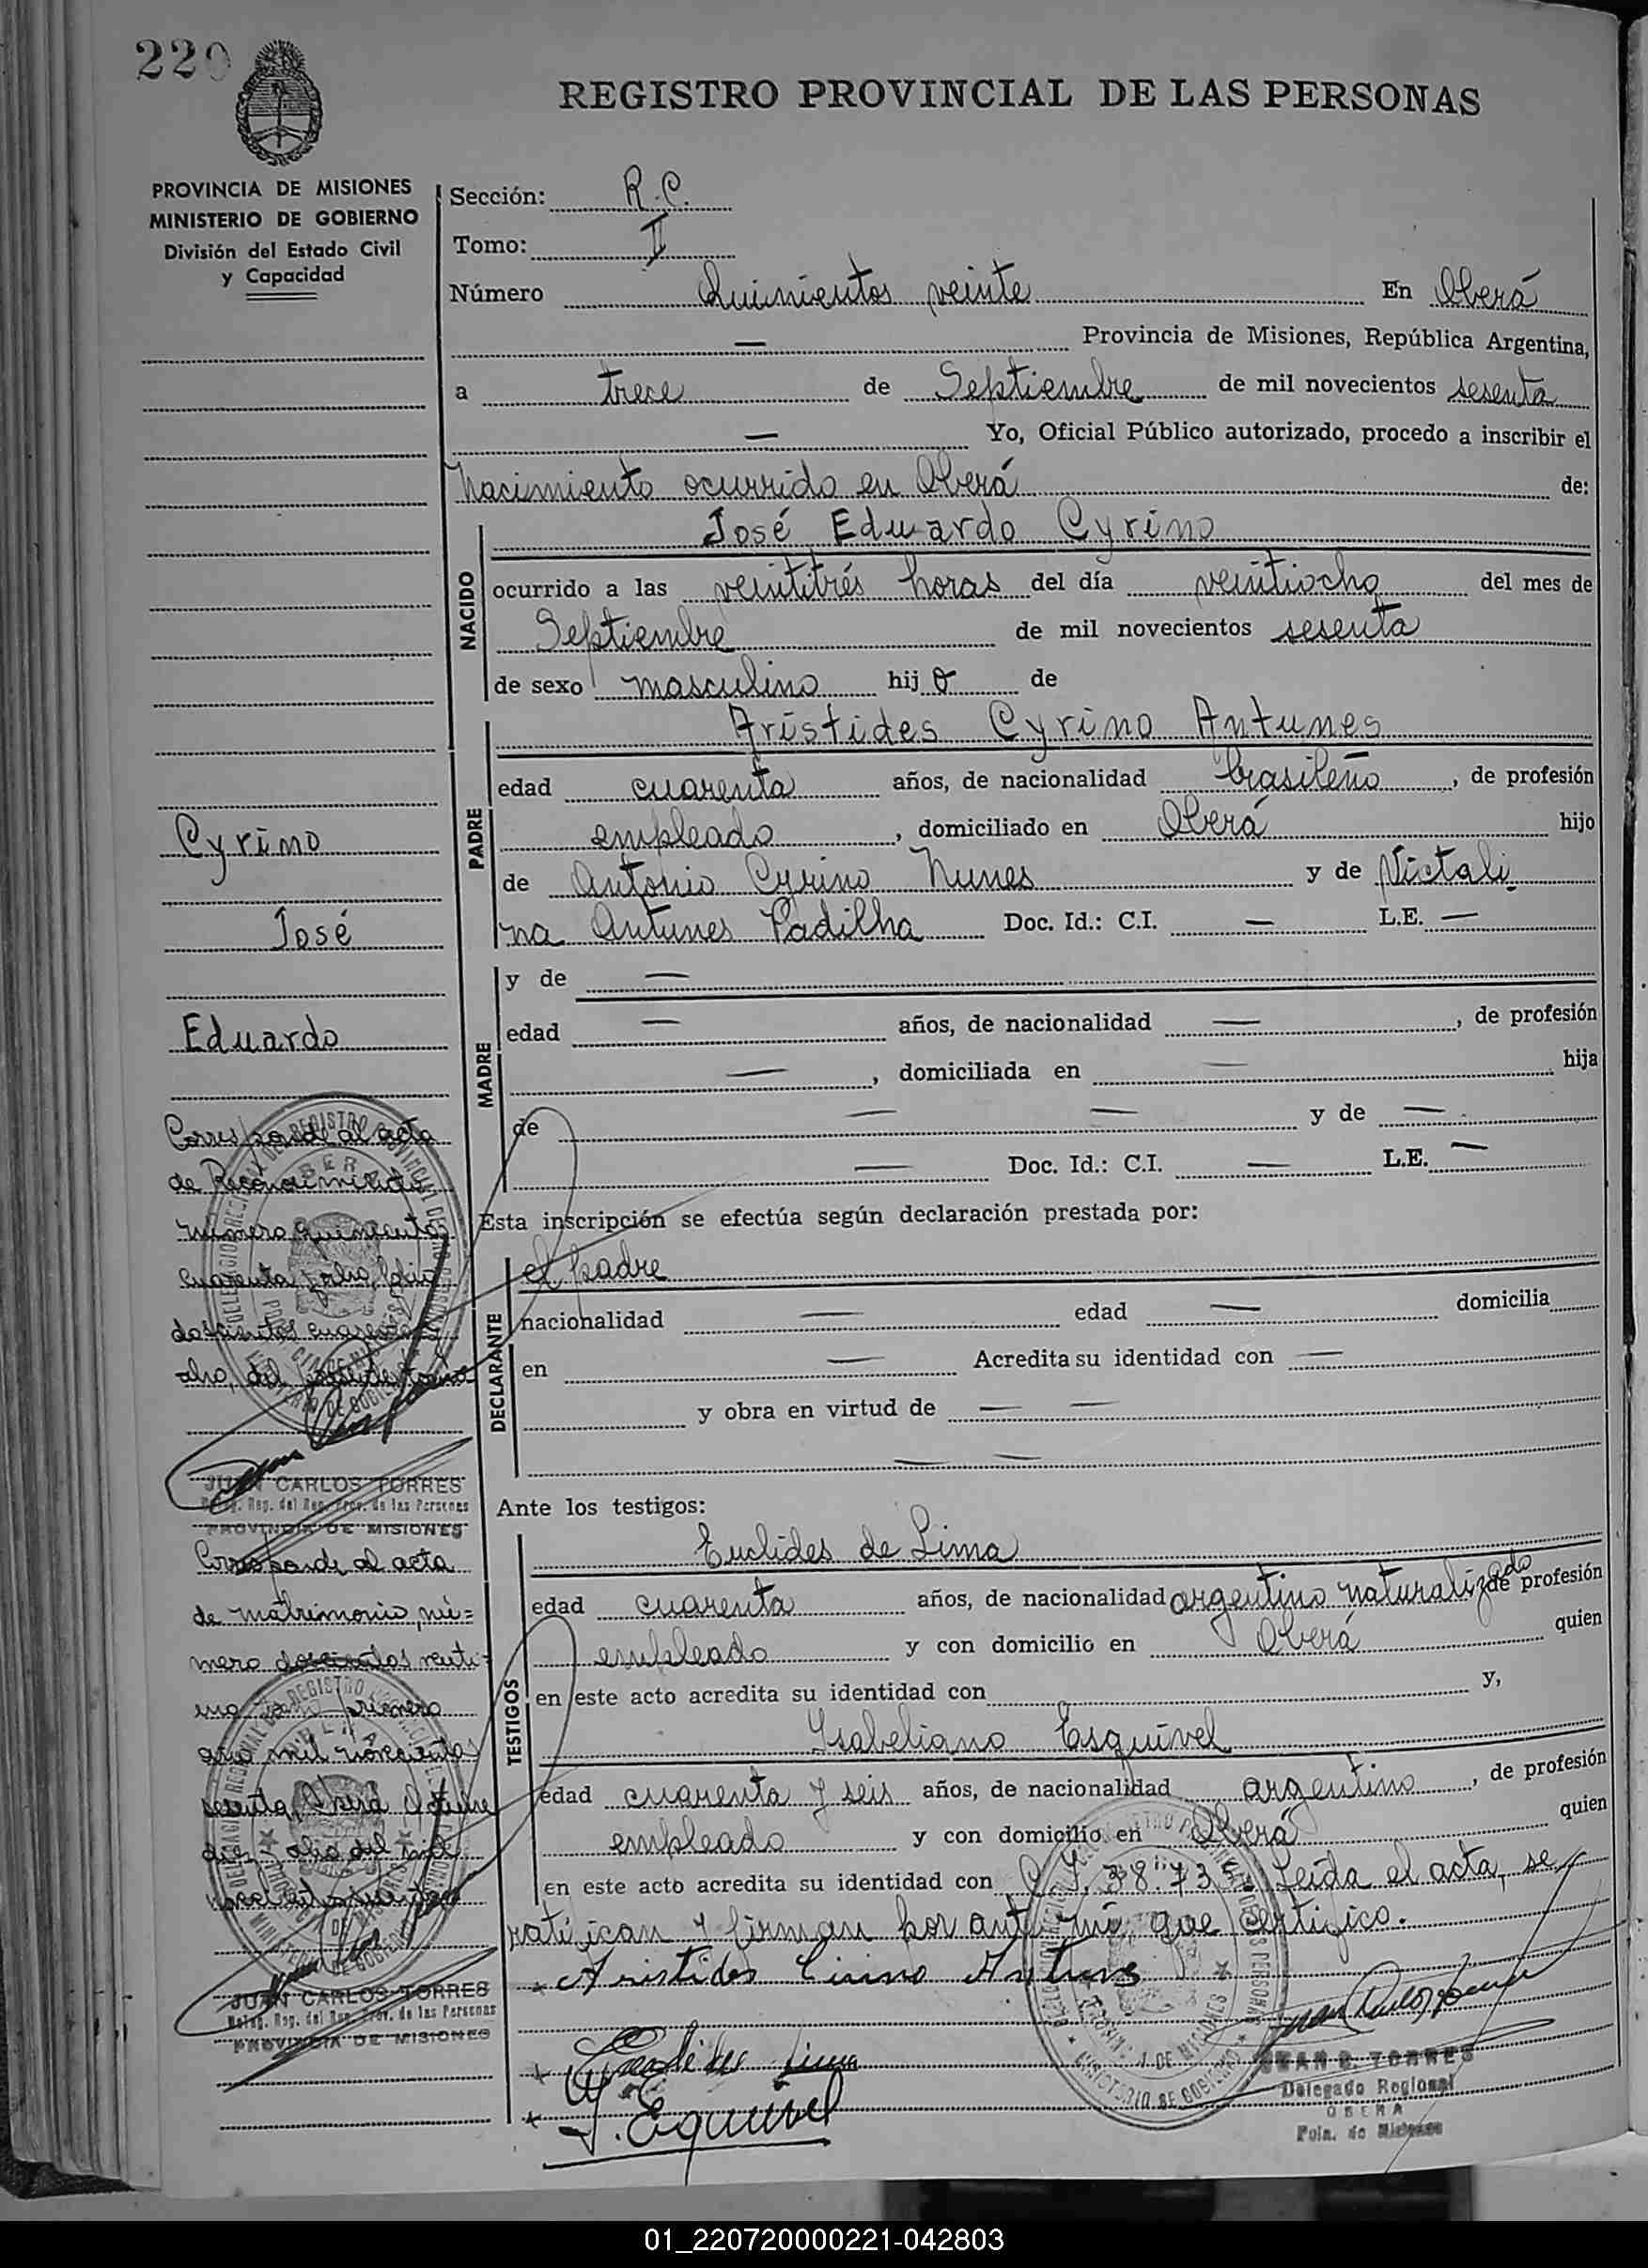 220
REGISTRO PROVINCIAL DE LAS PERSONAS
PROVINCIA DE MISIONES
MINISTERIO DE GOBIERNO
División del Estado Civil
y Capacidad
Sección: R.C.
Tomo: II
Número Quinientos veinte En Oberá
— Provincia de Misiones, República Argentina,
a trece de Septiembre de mil novecientos sesenta
— Yo, Oficial Público autorizado, procedo a inscribir el
nacimiento ocurrido en Oberá de:
NACIDO
José Eduardo Cyrino
ocurrido a las veintitrés horas del día veintiocho del mes de
Septiembre de mil novecientos sesenta
de sexo masculino hijo de
PADRE
Arístides Cyrino Antunes
edad cuarenta años, de nacionalidad brasileño, de profesión
empleado, domiciliado en Oberá hijo
de Antonio Cyrino Nunes y de Victali
na Antunes Padilha Doc. Id.: C.I. — L.E. —
MADRE
y de —
edad — años, de nacionalidad —, de profesión
—, domiciliada en — hija
de — — y de —
— Doc. Id.: C.I. — L.E. —
Esta inscripción se efectúa según declaración prestada por:
DECLARANTE
el padre
nacionalidad — edad — domicilia
en — Acredita su identidad con —
y obra en virtud de — —
— —
Ante los testigos:
TESTIGOS
Euclides de Lima
edad cuarenta años, de nacionalidad argentino naturalizado de profesión
empleado y con domicilio en Oberá quien
en este acto acredita su identidad con y,
Isabeliano Esquivel
edad cuarenta y seis años, de nacionalidad argentino, de profesión
empleado y con domicilio en Oberá quien
en este acto acredita su identidad con C.I. 38.735 Leída el acta, se
ratifican y firman por ante mí que certifico.
Aristides Cirino Antunes
Euclides Lima
I. Esquivel
JUAN C. TORRES
Delegado Regional
OBERA
Pcia. de Misiones
Cyrino
José
Eduardo
Corresponde al acta
de Reconocimiento
número quinientos
cuarenta y ocho, folio
doscientos cuarenta y
ocho, del
JUAN CARLOS TORRES
Deleg. Reg. del Reg. Prov. de las Personas
PROVINCIA DE MISIONES
Corresponde al acta
de matrimonio nú=
mero doscientos veinti=
uno tomo primero
año mil novecientos
sesenta, Oberá Octubre
diez y ocho del mil
novecientos sesenta
JUAN CARLOS TORRES
Deleg. Reg. del Reg. Prov. de las Personas
PROVINCIA DE MISIONES
01_220720000221-042803